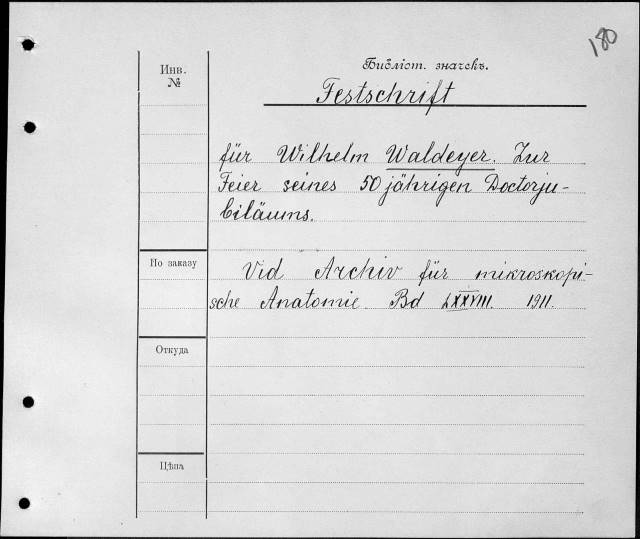 180
Инв.
№
Библіот. значекъ.
Festschrift
für Wilhelm Waldeyer. Zur
Feier seines 50 jährigen Doctorju-
biläums.
По заказу
Vid Archiv für mikroskopi-
sche Anatomie. Bd LXXVIII. 1911.
Откуда
Цѣна